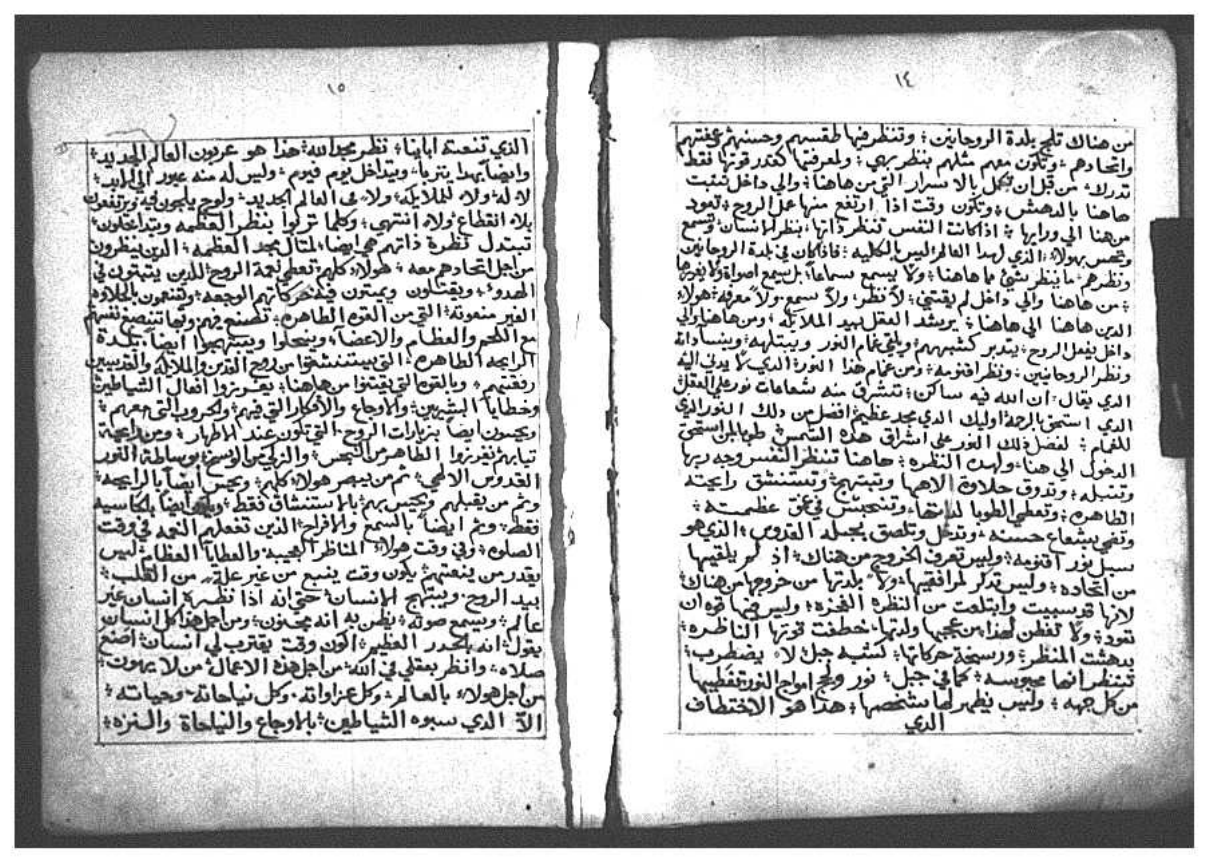 ١٤
من هناك تلج بلدة الروحانيين؛ وتنظر فيها طقسهم وحسنهم عفتهم
واتحادهم؛ وتكون معهم مثلهم بنظر بهي؛ ولمعرفتها كقدر قوتها فقط
تدرك؛ من قبل ان تكمل بالاسرار التي من هاهنا؛ والي داخل تثبت
هاهنا بالدهش؛ وتكون وقت اذا ارتفع منها عمل الروح؛ تعود
من هنا الي ورايها؛ اذا كانت النفس تنظر ذاتها؛ بنظر الانسان وتسمع
وتحس بهولاء؛ الذي لهذا العالم ليس بالكليه؛ فاذا كان في بلدة الروحانيين
ونظرهم؛ ما ينظر بشي مما هاهنا؛ ولا يسمع سماعا؛ بل يسمع اصواة
؛ من هاهنا والي داخل لم يقتني؛ لا نظر؛ ولا سمع؛ ولا معرفه؛ هولاء
الذين هاهنا الي هاهنا؛ يرشد العقل بيد الملايكه؛ ومن هاهنا والي
داخل بفعل الروح؛ يتدبر كشبههم؛ غمام النور
ونظر الروحانيين؛ ونظر اقنومه؛ ومن غمام هذا النور؛ الذي لا يدني اليه
الذي يقال؛ ان الله فيه ساكن؛ تشرق منه شعاعات نور علي العقل
الذي استحق بالرحمة؛ اوليك الذي مجد عظيم؛ افضل من ذلك النور الذي
للغمام؛ لفضل ذلك النور علي اشراق هذه الشمس؛ طوبا لمن استحق
الدخول الي هنا؛ ولهذه النظره؛ هاهنا تنظر النفس وجه ربها
وتنبله؛ وتذوق حلاوة الاهها وتبتهج؛ وتستنشق رايحته
الطاهره؛ وتعطي الطوبا لذاتها؛ في عمق عظمته؛
وتضي بشعاع حسنه؛ وتدخل وتلصق بجمله القدوس؛ الذي هو
سبل نور اقنومه؛ وليس تعرف الخروج من هناك؛ اذ لم يلقيها
من اتحاده؛ وليس تذكر لمرافقيها؛ ولا بلدتها من خروجها من هناك؛
لانها قد سبيت وابتلعت من النظرة الفخره؛ وليس فيها قوه ان
تعود؛ ولا تفطن لهذا؛ من عجبها ولذتها؛ خطفت قوتها الناظره؛
بدهشت المنظر؛ ورسيخة حركاتها؛ كشبه جبل لا يضطرب؛
تبنظر انها محبوسه؛ كما في جبل؛ نور ولجج امواج النور تغطيها
من كل جهه؛ وليس يظهر لها شخصها؛ هذا هو الاختطاف
الذي
١٥
الذي تنعته ابايناء؛ نظر مجد الله؛ هذا هو عربون العالم الجديد؛
وايضا بهذا يتربا؛ ويتداخل يوم فيوم؛ وليس له منه عبور الي الابد؛
لا له؛ ولا للملايكه؛ ولا في العالم الجديد؛ ولوج يلجون فيه ويرتفعون
بلا انقطاع ولا انتهي؛ وكلما تركوا بنظر العظمه ويتداخلون؛
تبتدل نظرة ذاتهم هي ايضا؛ لمثال مجد العظمه؛ الذين ينظرون
من اجل اتحادهم معه؛ هولاء كلهم تعطي نعمة الروح؛ للذين يثبتون في
الهدوء؛ ويقتلون ويميتون فيه حركاتهم الوجعه؛ وتنعمون بالحلاوه
الغير منعوته؛ التي من القوه الطاهره؛ تصنع فيهم وبها تنبصغ نفسهم
مع اللحم والعظام والاعضا؛ وينحلوا ويبتهجوا ايضا؛ بلذة
الرايحه الطاهره؛ التي يستنشقوا من روح القدس والملايكه والقديسين
رفقتهم؛ وبالقوه التي يقتنوا من هاهنا؛ يفروزوا افعال الشياطين؛
وخطايا البشريين؛ والاوجاع والافكار التي فيهم؛ والحروب التي معهم؛
ويحسون ايضا بزيارات الروح؛ التي تكون عند الاطهار؛ ومن رايحة
ثيابهم يفرزوا الطاهر من النجس؛ والزكي من الوسخ؛ بوساطة النور
القدوس الالهي؛ ثم من يبصر هولاء كلهم؛ ويحس ايضا بالرايحه؛
وثم من يقبلهم ويحس بهم؛ بالاستنشاق فقط؛ ايضا بالحاسيه
فقط؛ وثم ايضا بالسمع والافراح؛ الذين تفعلهم النعمه في وقت
الصلوه؛ وفي وقت هولاء المناظر العجيبه والعطايا العظام؛ ليس
يقدر من ينعتهم؛ يكون وقت ينبع من غير علة من القلب؛
بيد الروح؛ ويبتهج الانسان؛ حتي انه اذا نظره انسان غير
عالم؛ ويسمع صوته؛ يظن به انه مجنون؛ ومن اجل هذا كل انسان
يقول؛ انه بالحدر العظيم؛ اكون وقت يقترب لي انسان؛ اصنع
صلاه؛ وانظر بعقلي في الله؛ من اجل هذه الاعمال؛ من لا يهون؛
من اجل هولاء بالعالم؛ وكل عزاواته؛ وكل نياحاته؛ وحياته؛
الا الذي سبوه الشياطين؛ بالاوجاع والنياحاة والنزه؛